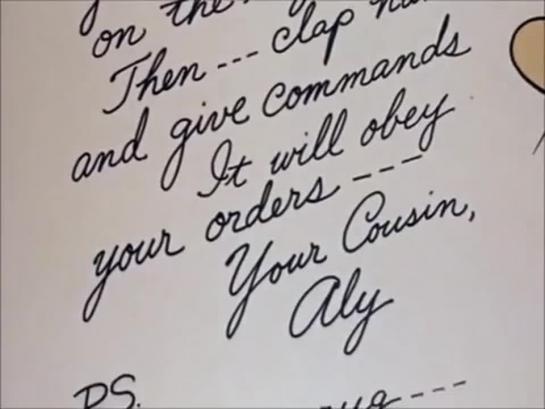 on the
Then --- clap
and give commands
It will obey
your orders ---
Your Cousin,
Aly
P.S.